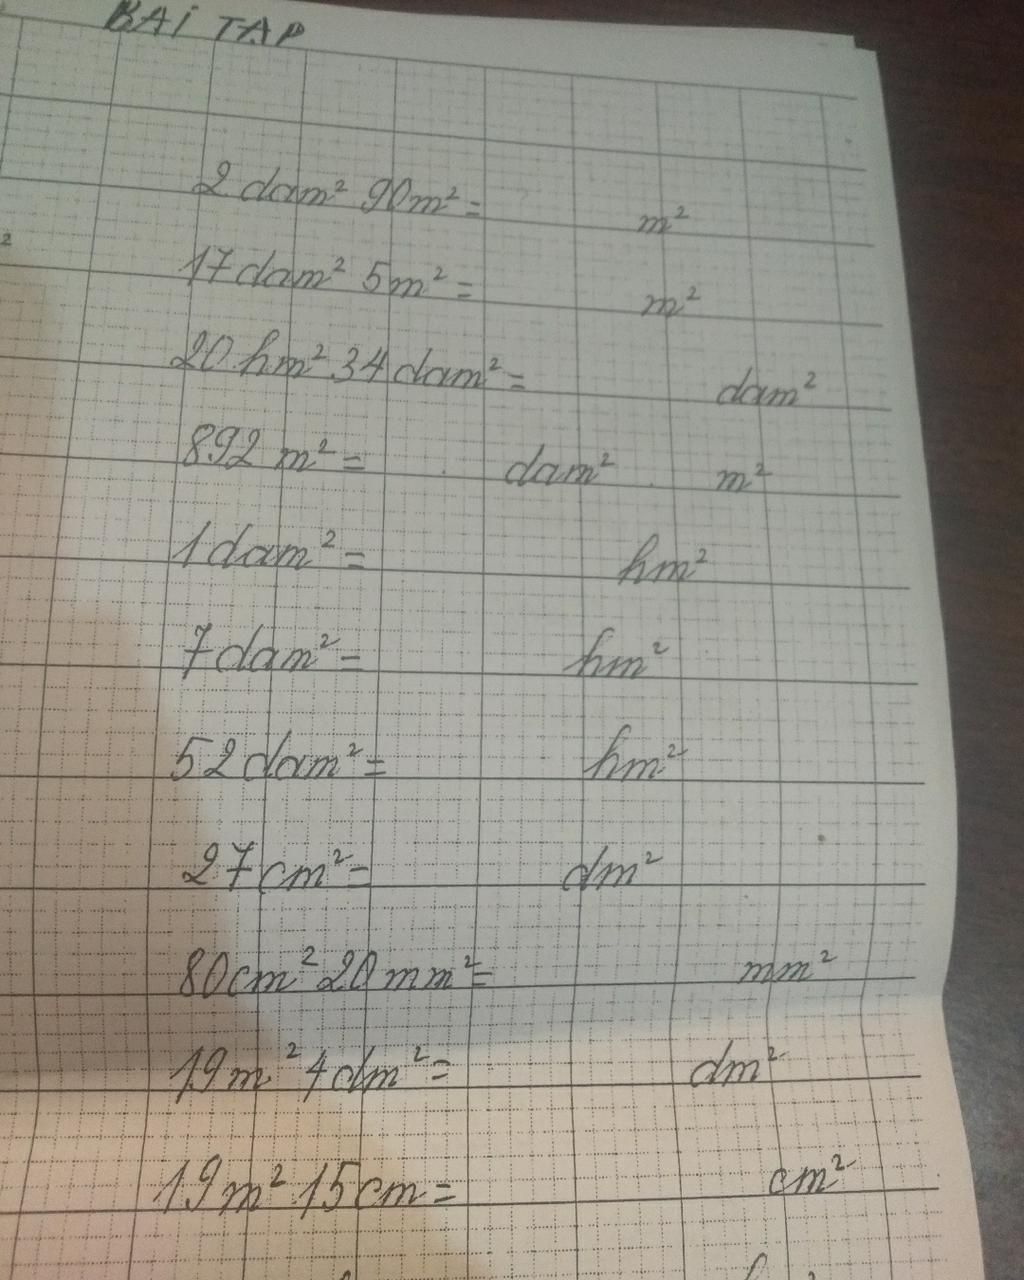 BÀI TAP
2 dam² 90m² = m²
17 dam² 5m² = m²
20 hm² 34 dam² = dam²
892 m² = dam² m²
1 dam² = hm²
7 dam² = hm²
52 dam² = hm²
27 cm² = dm²
80cm² 20 mm² = mm²
19m² 4dm² = dm²
19m² 15cm = cm²